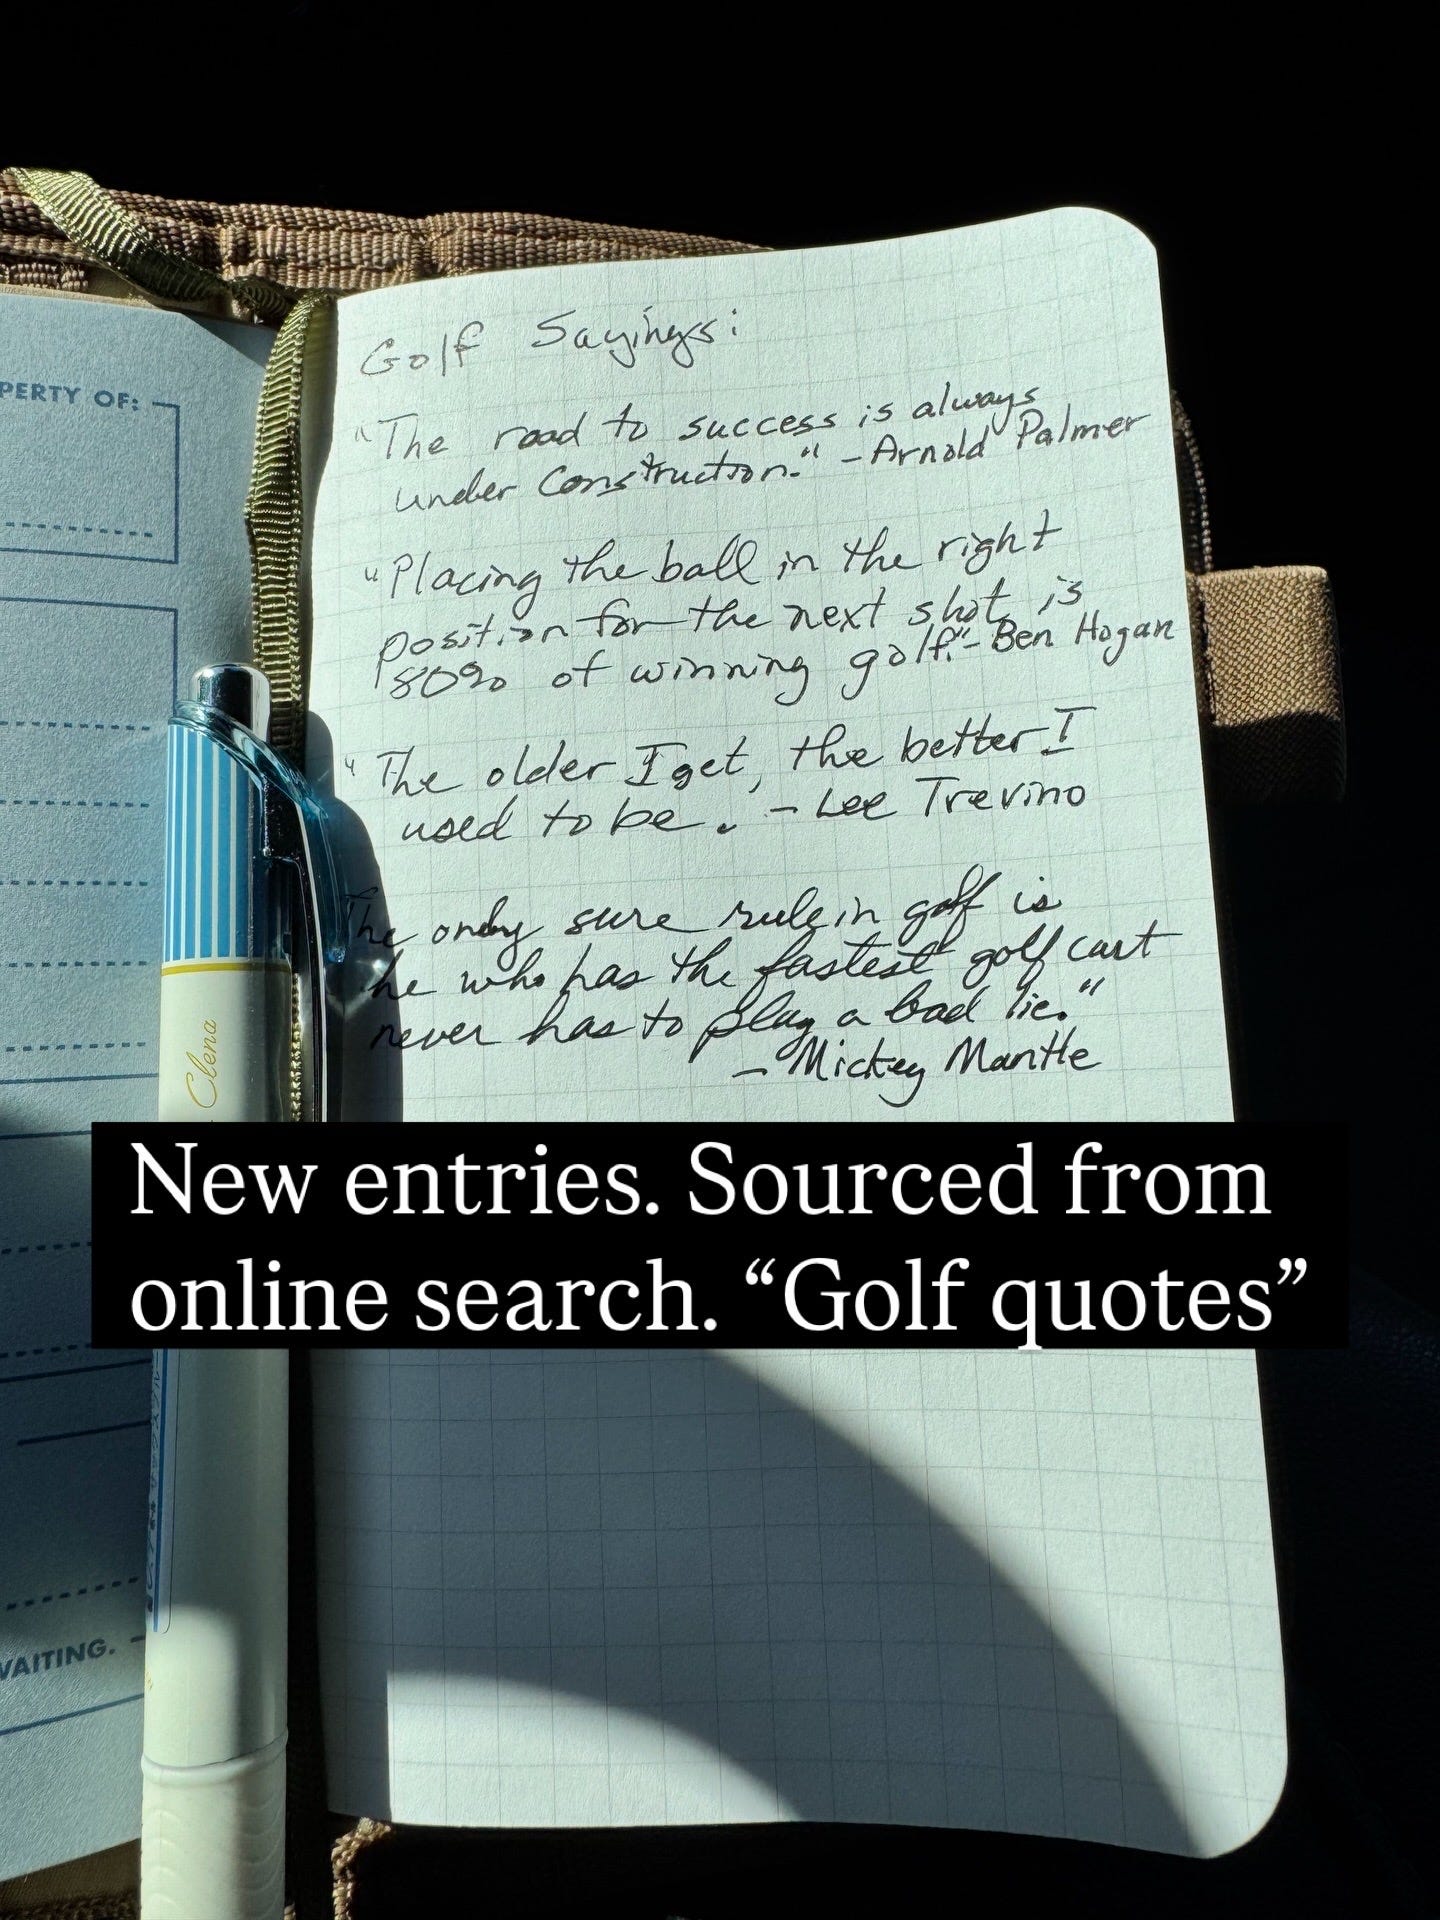 PERTY OF:
Golf Sayings:
"The road to success is always
under construction." - Arnold Palmer
"Placing the ball in the right
position for the next shot is
80% of winning golf." - Ben Hogan
"The older I get, the better I
used to be. - Lee Trevino
The only sure rule in golf is
he who has the fastest golf cart
never has to play a bad lie."
- Mickey Mantle
Clena
New entries. Sourced from
online search. “Golf quotes”
WAITING.